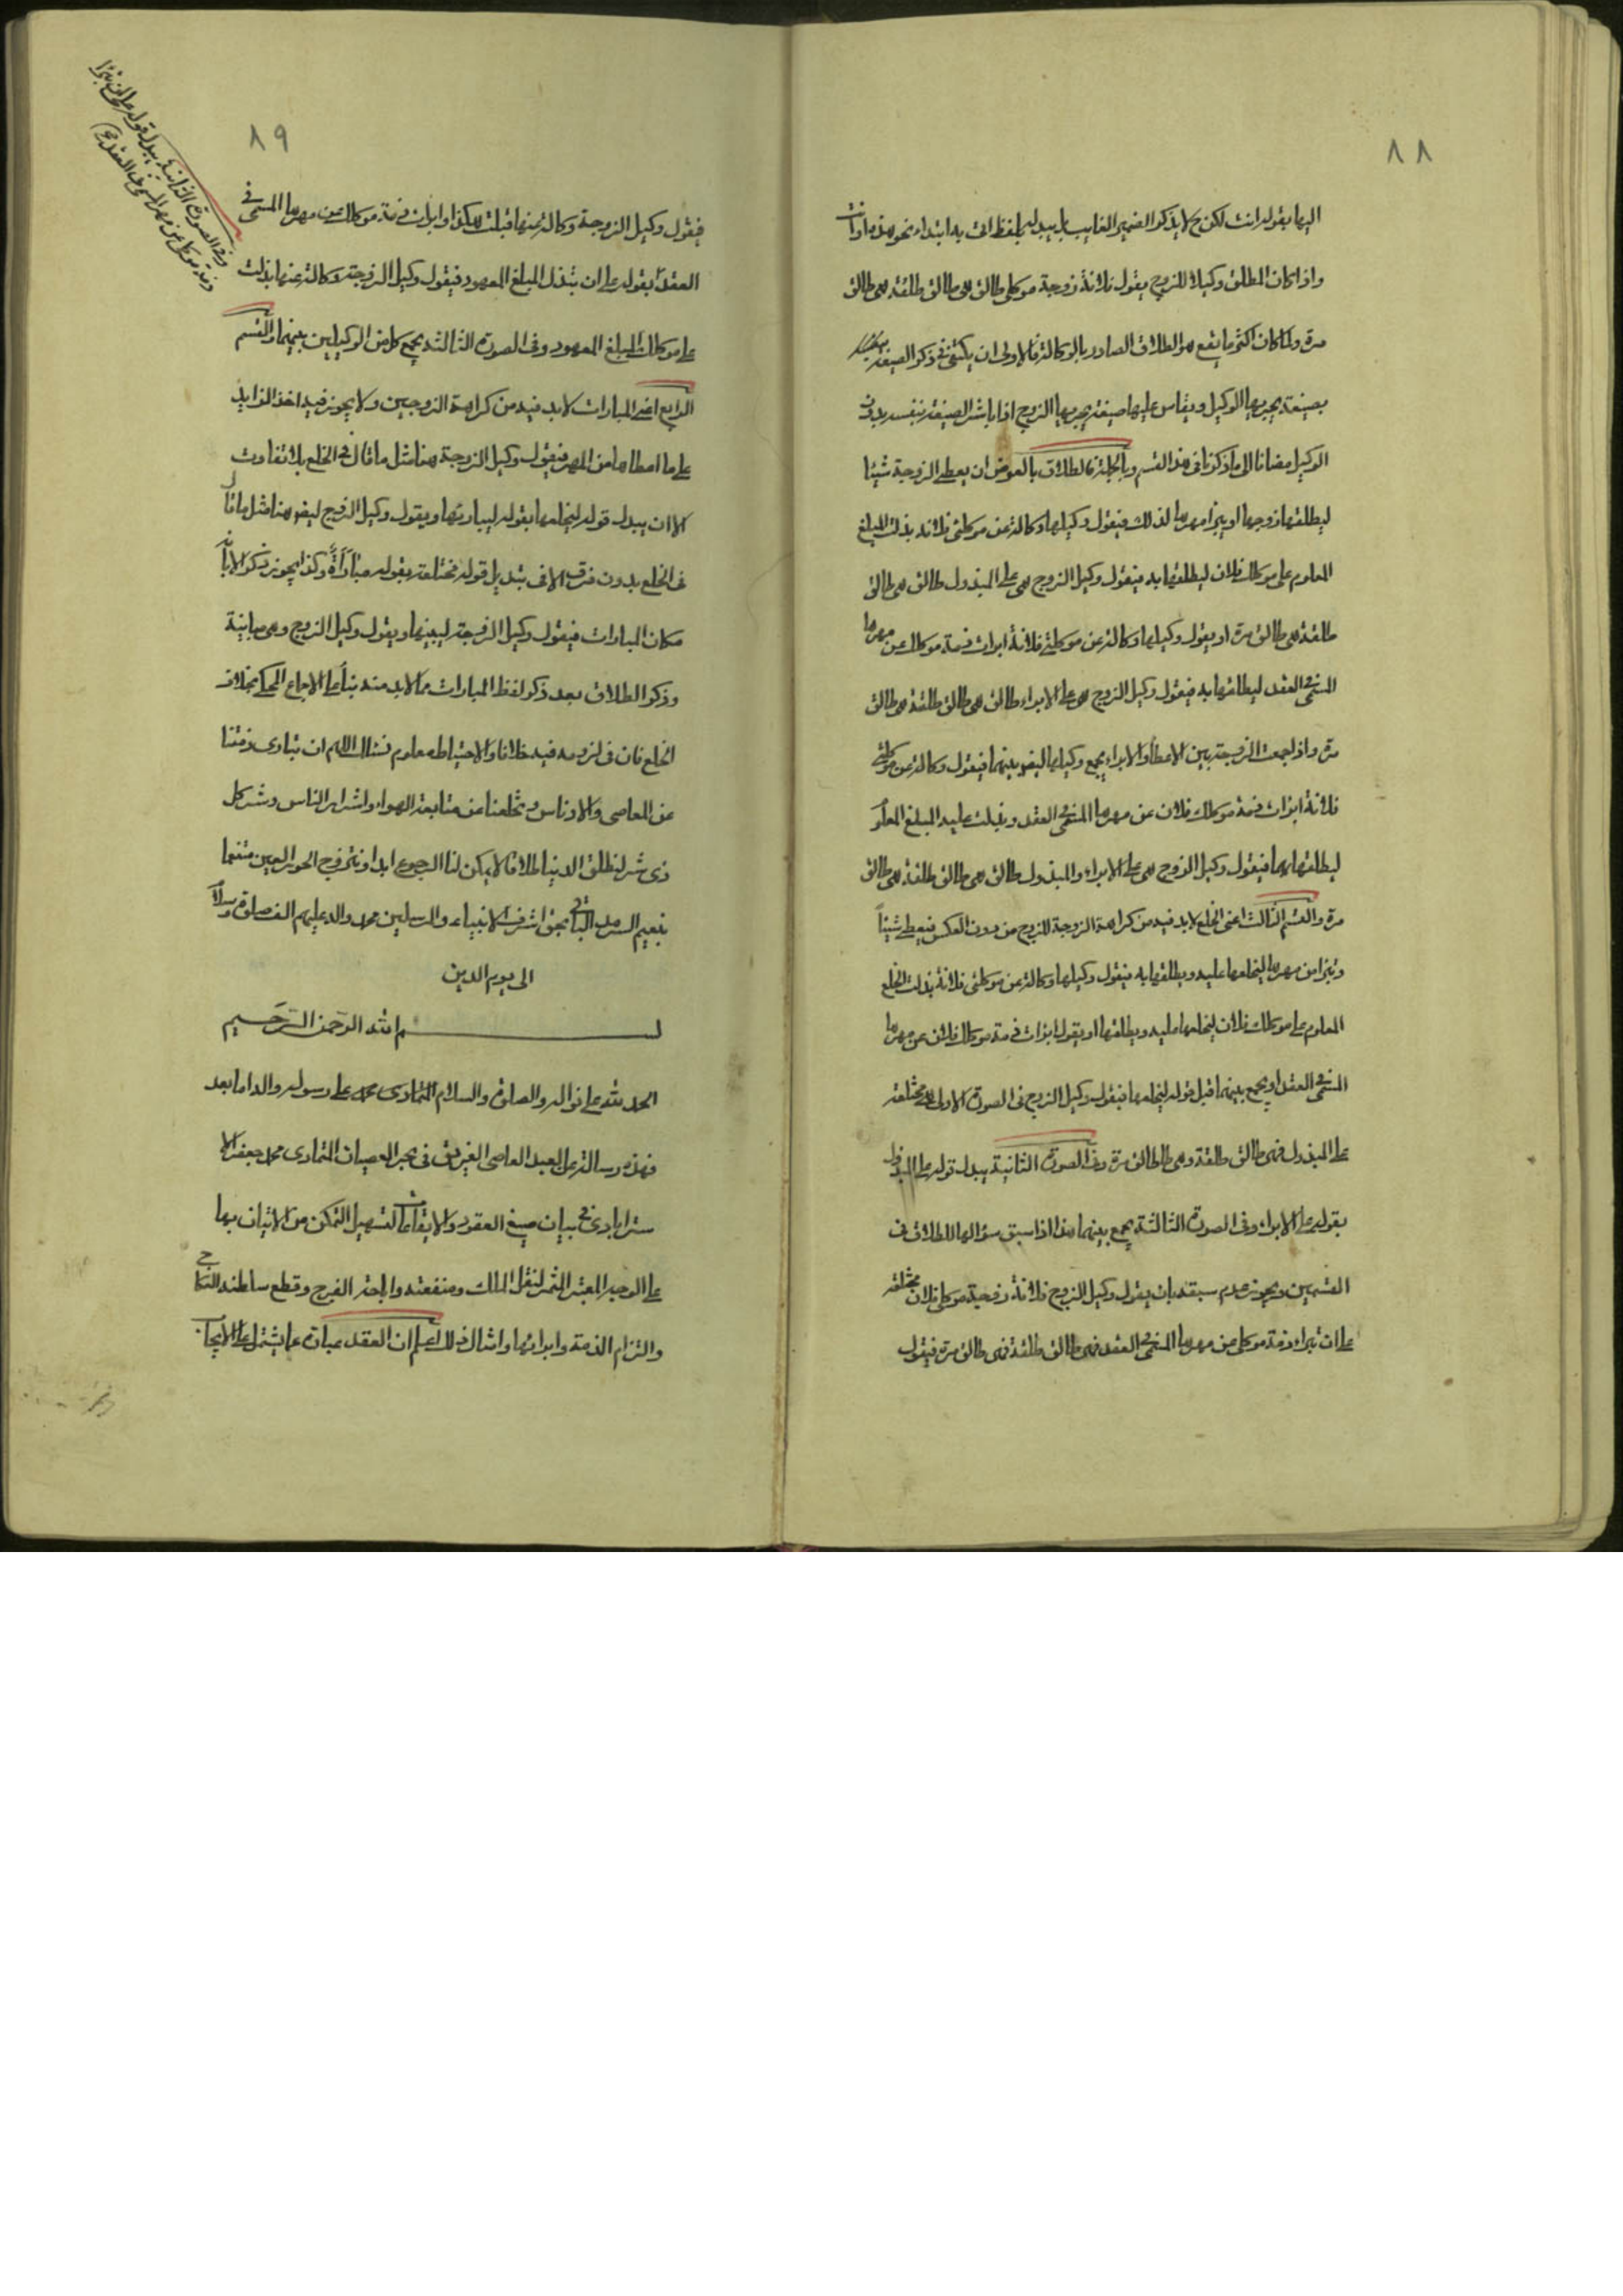 ٨٨
اليها بقوله انت لكن ح لا يذكر الضمير الغايب بل يبدله بلفظ انت به ابتداء نحو هذه او انت
واذا كان المطلق وكيلا للزوج يقول فلانة زوجة موكلي طالق هي طالق طلقة هي طالق
مرة ولما كان اكثر ما يقع هو الطلاق الصادر بالوكالة فالاولى ان يكتفى في ذكر الصيغة
بصيغة يجريها الوكيل ويقاس عليها صيغة يجريها الزوج اذا باشر الصيغة بنفسه بدون
الوكيل مضافا الى ما ذكرنا في هذا القسم وبالجملة فالطلاق بالعوض ان يعطي الزوجة شيئا
ليطلقها زوجها او يبرأ مهرها لذلك فيقول وكيلها وكالة عن موكلتي فلانة بذلت المبلغ
المعلوم على موكلك فلان ليطلقها به فيقول وكيل الزوج هي على المبذول طالق هي طالق
طلقة هي طالق مرة او يقول وكيلها وكالة عن موكلتي فلانة ابرات ذمة موكلك عن مهرها
المسمى في العقد ليطلقها به فيقول وكيل الزوج هي على الابراء طالق هي طالق طلقة هي طالق
مرة واذا جمعت الزوجة بين الاعطاء والابراء يجمع وكيلها ايضا بينهما فيقول وكالة عن موكلتي
فلانة ابرات ذمة موكلك فلان عن مهرها المسمى في العقد وبذلت عليه المبلغ المعلوم
ليطلقها بهما فيقول وكيل الزوج هي على الابراء والمبذول طالق هي طالق طلقة هي طالق
مرة والقسم الثالث اعني الخلع لابد فيه من كراهة الزوجة للزوج من دون العكس فيعطي شيئاً
وتبرا من مهرها ليخلعها عليه ويطلقها به فيقول وكيلها وكالة عن موكلتي فلانة بذلت الخلع
المعلوم على موكلك فلان ليخلعها عليه ويطلقها او يقول ابرات ذمة موكلك فلان عن مهرها
المسمى في العقد او يجمع بينهما قبل قوله ليخلعها فيقول وكيل الزوج في الصورة الاولى هي مختلعة
على المبذول فهي طالق طلقة وهي طالق مرة وفي الصورة الثانية يبدل قوله على المبذول
بقوله على الابراء وفي الصورة الثالثة يجمع بينهما هذا اذا سبق سؤالها للطلاق في
القسمين ويجوز عدم سبقه بان يقول وكيل الزوج فلانة زوجة موكلي فلان مختلعة
على ان تبراء ذمة موكلي من مهرها المسمى في العقد فهي طالق طلقة فهي طالق مرة فيقول
٨٩
وفي الصورة الثانية يبدل قوله على ان تبرأ
ذمة موكلي من مهرها المسمى في العقد
فيقول وكيل الزوجة وكالة عنها قبلت هكذا او ابرات ذمة موكلك من مهرها المسمى في
العقد بقوله على ان تبذل المبلغ المعهود فيقول وكيل الزوجة وكالة عنها بذلت
على موكلك المبلغ المعهود وفي الصورة الثالثة يجمع كل من الوكيلين بينهما والقسم
الرابع اعني المبارات لابد فيه من كراهة الزوجين ولا يجوز فيه اخذ الزايد
على ما اعطاها من المهر فيقول وكيل الزوجة هنا مثل ما قال في الخلع بلا تفاوت
الا ان يبدل قوله ليخلعها بقوله ليباريها ويقول وكيل الزوج ايضا هنا مثل ما قال
في الخلع بدون فرق الا في تبديل قوله مختلعة بقوله مباراة وكذا يجوز ذكر الابانة
مكان المبارات فيقول وكيل الزوجة ليبينها ويقول وكيل الزوج وهي مباينة
وذكر الطلاق بعد ذكر لفظ المبارات مما لابد منه بناء على الاجماع المحكي بخلاف
الخلع فان في لزومه فيه خلافا والاحتياط معلوم نسال اللهم ان تبارى ذمتنا
عن المعاصي والادناس وتخلعنا عن متابعة الهواء واشرار الناس وشر كل
ذي شر لنطلق الدنيا طلاقا لا يمكن لنا الرجوع ابدا ونتزوج الحور العين متنعما
بنعيم السرمد الباقي بحق اشرف الانبياء والمرسلين محمد واله عليهم الف صلوة وسلام
الى يوم الدين
بسم الله الرحمن الرحيم
الحمد لله على نواله والصلوة والسلام التمادى محمد على رسوله واله اما بعد
فهذه رسالة من العبد العاصي الغريق في بحر العصيان التمادى محمد جعفر الا
سترابادي في بيان صيغ العقود والايقاعات لتسهيل التمكن من الاتيان بها
على الوجه المعتبر المثمر لنقل الملك ومنفعته واباحة الفرج وقطع سلطنة النكاح
والتزام الذمة وابرائها وامثال ذلك اعلم ان العقد عبارة عما يشتمل على الايجاب